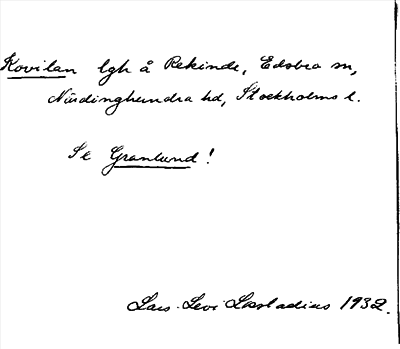 Kovilan lgh å Rekinde, Edsbro sn,
Närdinghundra hd, Stockholms l.
Se Granlund!
Lars-Levi Læstadius 1932.